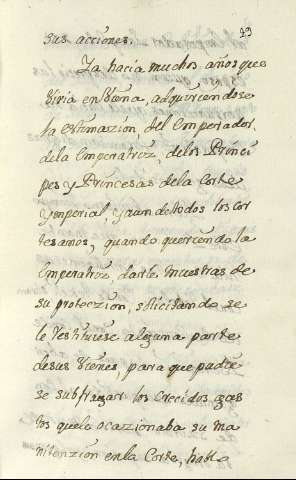 93
sus acciones.
Ya hacia muchos años que
vivia en Viena, adquiriendose
la estimazion, del Emperador,
dela Emperatriz, delos Princi
pes y Princesas dela Corte
Ymperial, y aun de todos los cor
tesanos, quando queriendo la
Emperatriz darle muestras de
su proteczion, solicitando se
le restituiese alguna parte
desus vienes, para que pudiese
se subfragar los crecidos gas
tos quele ocazionaba su ma
nutenzion en la Corte, hallo